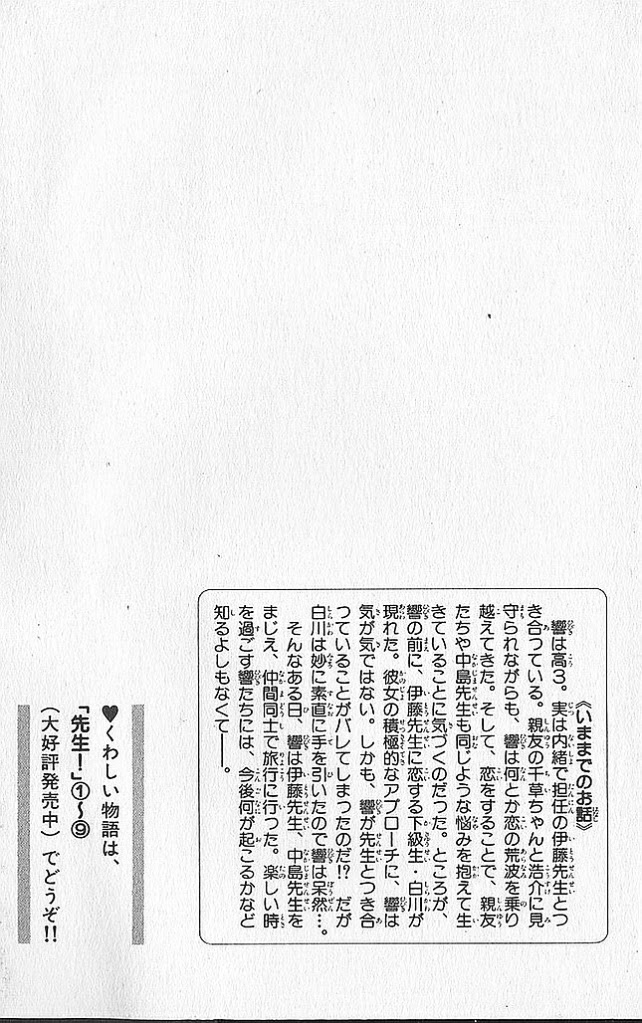 《いままでのお話》
響は高3。実は内緒で担任の伊藤先生とつ
き合っている。親友の千草ちゃんと浩介に見
守られながらも、響は何とか恋の荒波を乗り
越えてきた。そして、恋をすることで、親友
たちや中島先生も同じような悩みを抱えて生
きていることに気づくのだった。ところが、
響の前に、伊藤先生に恋する下級生・白川が
現れた。彼女の積極的なアプローチに、響は
気が気ではない。しかも、響が先生とつき合
っていることがバレてしまったのだ!? だが
白川は妙に素直に手を引いたので響は呆然…。
そんなある日、響は伊藤先生、中島先生を
まじえ、仲間同士で旅行に行った。楽しい時
を過ごす響たちには、今後何が起こるかなど
知るよしもなくて──。
♥くわしい物語は、
「先生!」①〜⑨
(大好評発売中)でどうぞ!!